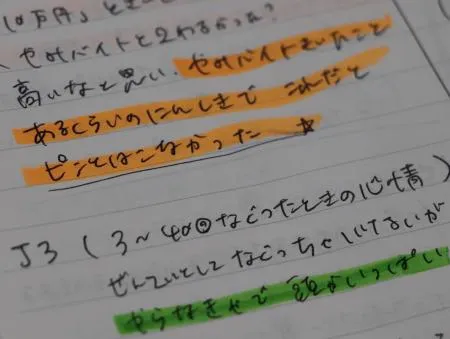 10万円」とき
、セキバイトとわかるかった?
高いなと思い、セキバイトきいたこと
あるくらいのにんしきで これだと
ピンとはこなかった ☆
J3 (3~4回なぐったときの心情)
ぜんていとしてなぐっちゃいけないが
やらなきゃで 頭がいっぱい